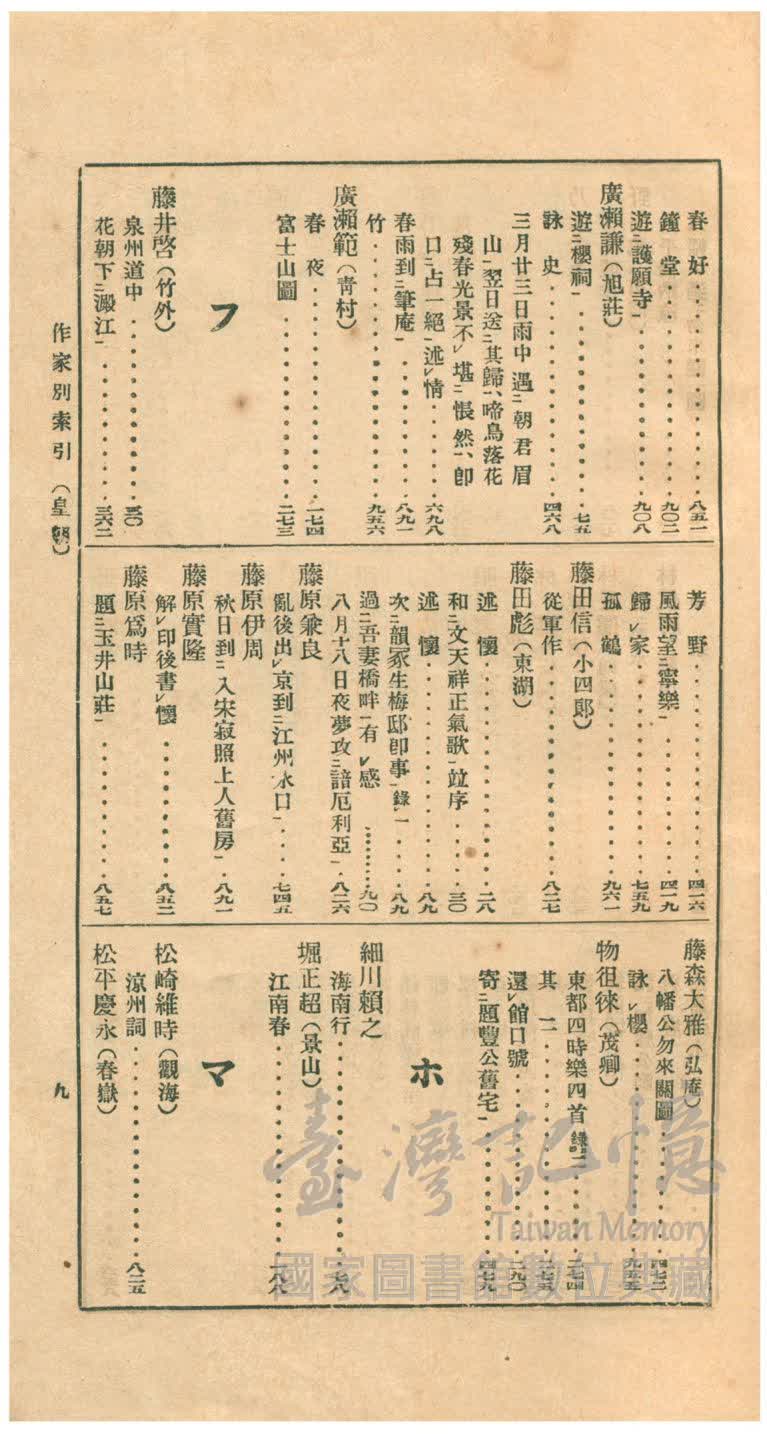 春好・・・・・・・・・・八五一
鐘堂・・・・・・・・・・九〇二
遊ニ護願寺一・・・・・・・九〇八
廣瀨謙（旭莊）
遊ニ櫻祠一・・・・・・・・七五
詠史・・・・・・・・・・四六八
三月廿三日雨中遇ニ朝君眉
山一翌日送ニ其歸一、啼鳥落花
殘春光景不レ堪ニ悵然一、卽
口ニ占一絕一述レ情・・・・・六九八
春雨到ニ筆庵一・・・・・・八九一
竹・・・・・・・・・・・九五六
廣瀨範（靑村）
春夜・・・・・・・・・・一七四
富士山圖・・・・・・・・二七三
フ
藤井啓（竹外）
泉州道中・・・・・・・・
花朝下ニ澱江一・・・・・・三六二
芳野・・・・・・・・・・四一六
風雨望ニ寧樂一・・・・・・四一九
歸レ家・・・・・・・・・七五九
孤鶴・・・・・・・・・・九六一
藤田信（小四郞）
從軍作・・・・・・・・・八二七
藤田彪（東湖）
述懷・・・・・・・・・・二八
和ニ文天祥正氣歌一竝序・・・・三〇
述懷・・・・・・・・・・八九
次ニ韻冢生梅邸卽事一錄一・・・・八九
過ニ吾妻橋畔一有レ感・・・・・九〇
八月十八日夜夢攻ニ諳厄利亞一・八二六
藤原兼良
亂後出レ京到ニ江州水口一・・・・七四五
藤原伊周
秋日到ニ入宋寂照上人舊房一・八九一
藤原實隆
解レ印後書レ懷・・・・・・八五二
藤原爲時
題ニ玉井山莊一・・・・・・八五七
藤森大雅（弘庵）
八幡公勿來關圖・・・・・四七二
詠レ櫻・・・・・・・・・九五五
物徂徠（茂卿）
東都四時樂四首錄二・・・・
其二・・・・・・・・・・
還レ館口號・・・・・・・二九〇
寄ニ題豐公舊宅一・・・・・四七九
ホ
細川賴之
海南行・・・・・・・・・七八
堀正超（景山）
江南春・・・・・・・・・一八八
マ
松崎維時（觀海）
涼州詞・・・・・・・・・八二五
松平慶永（春嶽）
作家別索引（皇朝）
九
臺灣記憶
Taiwan Memory
國家圖書館數位典藏